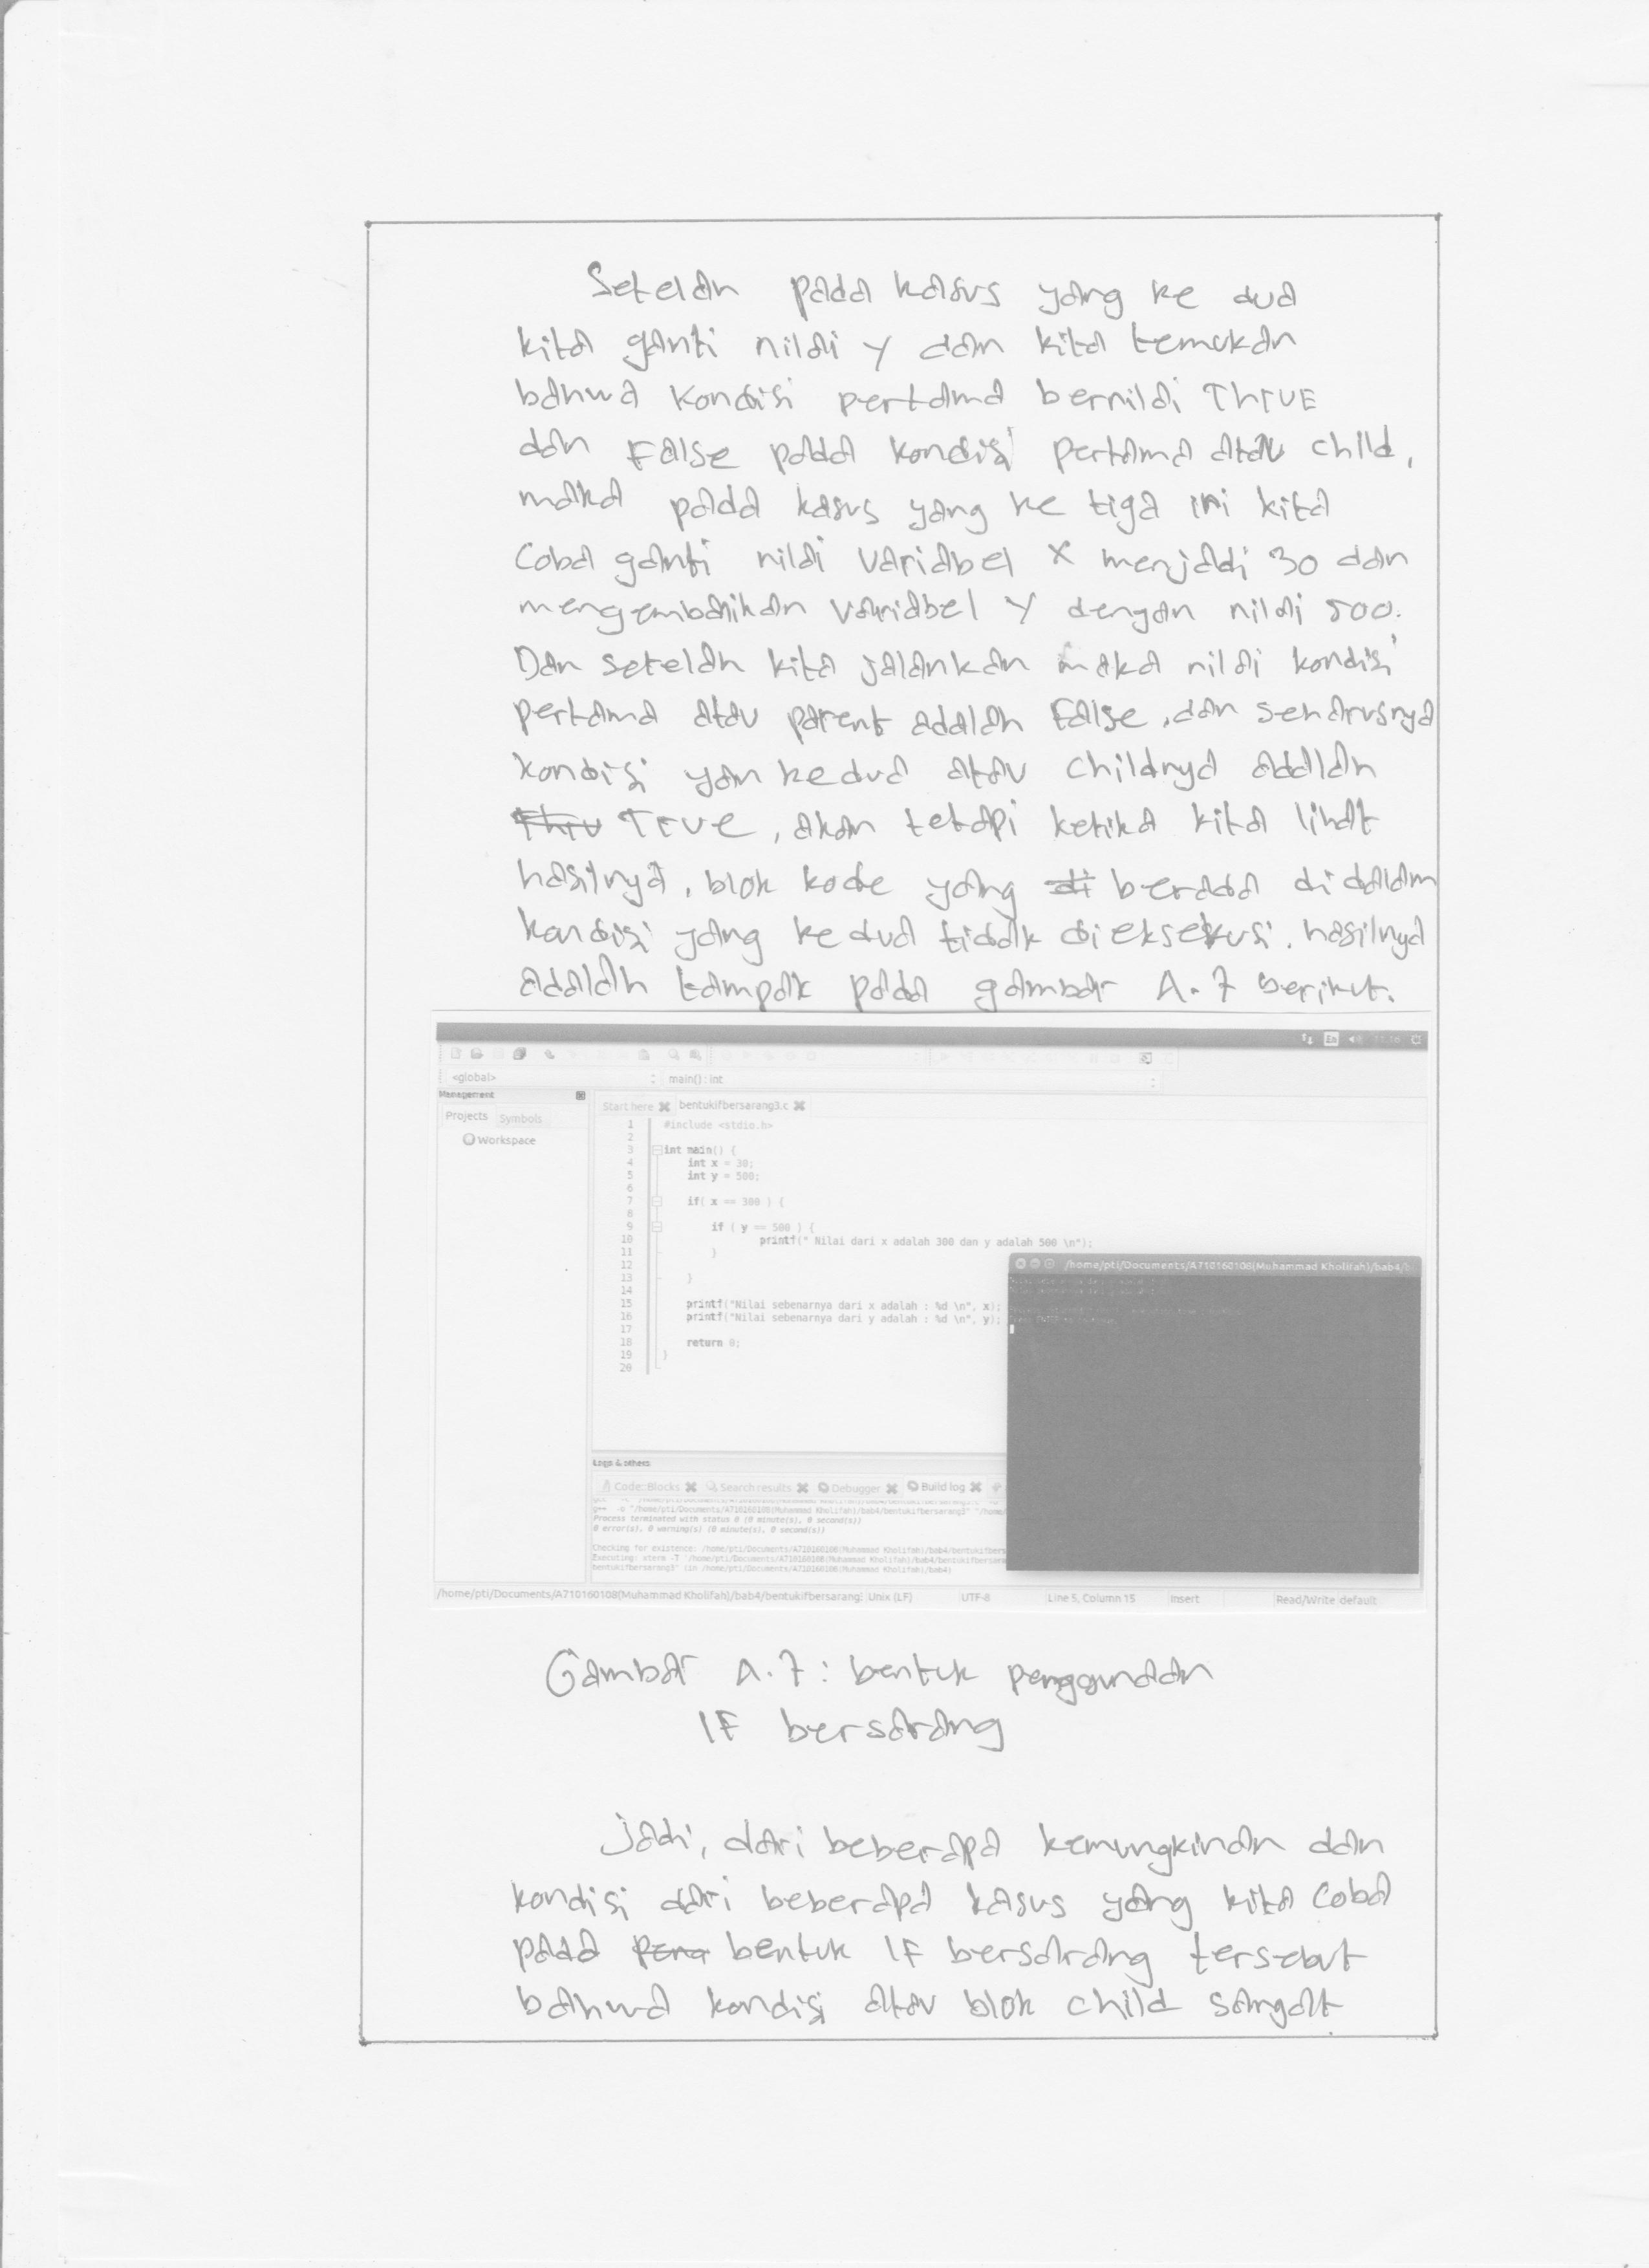 Setelah pada kasus yang ke dua
kita ganti nilai y dan kita temukan
bahwa kondisi pertama bernilai ThrUE
dan False pada kondisi pertama atau child,
maka pada kasus yang ke tiga ini kita
Coba ganti nilai Variabel x menjadi 30 dan
mengembalikan Variabel y dengan nilai 500.
Dan setelah kita jalankan maka nilai kondisi
pertama atau parent adalah False, dan seharusnya
kondisi yan kedua atau childnya adalah
True, akan tetapi ketika kita lihat
hasilnya, blok kode yang di berada di dalam
kondisi yang kedua tidak di eksekusi. hasilnya
adalah tampak pada gambar A.7 berikut.
En
<global> main() : int
Management
Projects Symbols
Workspace
Start here bentukifbersarang3.c
1 #include <stdio.h>
2
3 int main() {
4 int x = 30;
5 int y = 500;
6
7 if( x == 300 ) {
8
9 if ( y == 500 ) {
10 printf(" Nilai dari x adalah 300 dan y adalah 500 \n");
11 }
12
13 }
14
15 printf("Nilai sebenarnya dari x adalah : %d \n", x);
16 printf("Nilai sebenarnya dari y adalah : %d \n", y);
17
18 return 0;
19 }
20
/home/pti/Documents/A710160108(Muhammad Kholifah)/bab4/
Logs & others
Code::Blocks Search results Debugger Build log
g++ -o "/home/pti/Documents/A710160108(Muhammad Kholifah)/bab4/bentukifbersarang3"
Process terminated with status 0 (0 minute(s), 0 second(s))
0 error(s), 0 warning(s) (0 minute(s), 0 second(s))
Checking for existence: /home/pti/Documents/A710160108(Muhammad Kholifah)/bab4/bentukifbers
Executing: xterm -T '/home/pti/Documents/A710160108(Muhammad Kholifah)/bab4/bentukifbersara
bentukifbersarang3' (in /home/pti/Documents/A710160108(Muhammad Kholifah)/bab4)
/home/pti/Documents/A710160108(Muhammad Kholifah)/bab4/bentukifbersarang: Unix (LF) UTF-8 Line 5, Column 15 Insert Read/Write default
Gambar A.7 : bentuk penggunaan
IF bersarang
Jadi, dari beberapa kemungkinan dan
kondisi dari beberapa kasus yang kita Coba
pada bentuk IF bersarang tersebut
bahwa kondisi atau blok child sangat